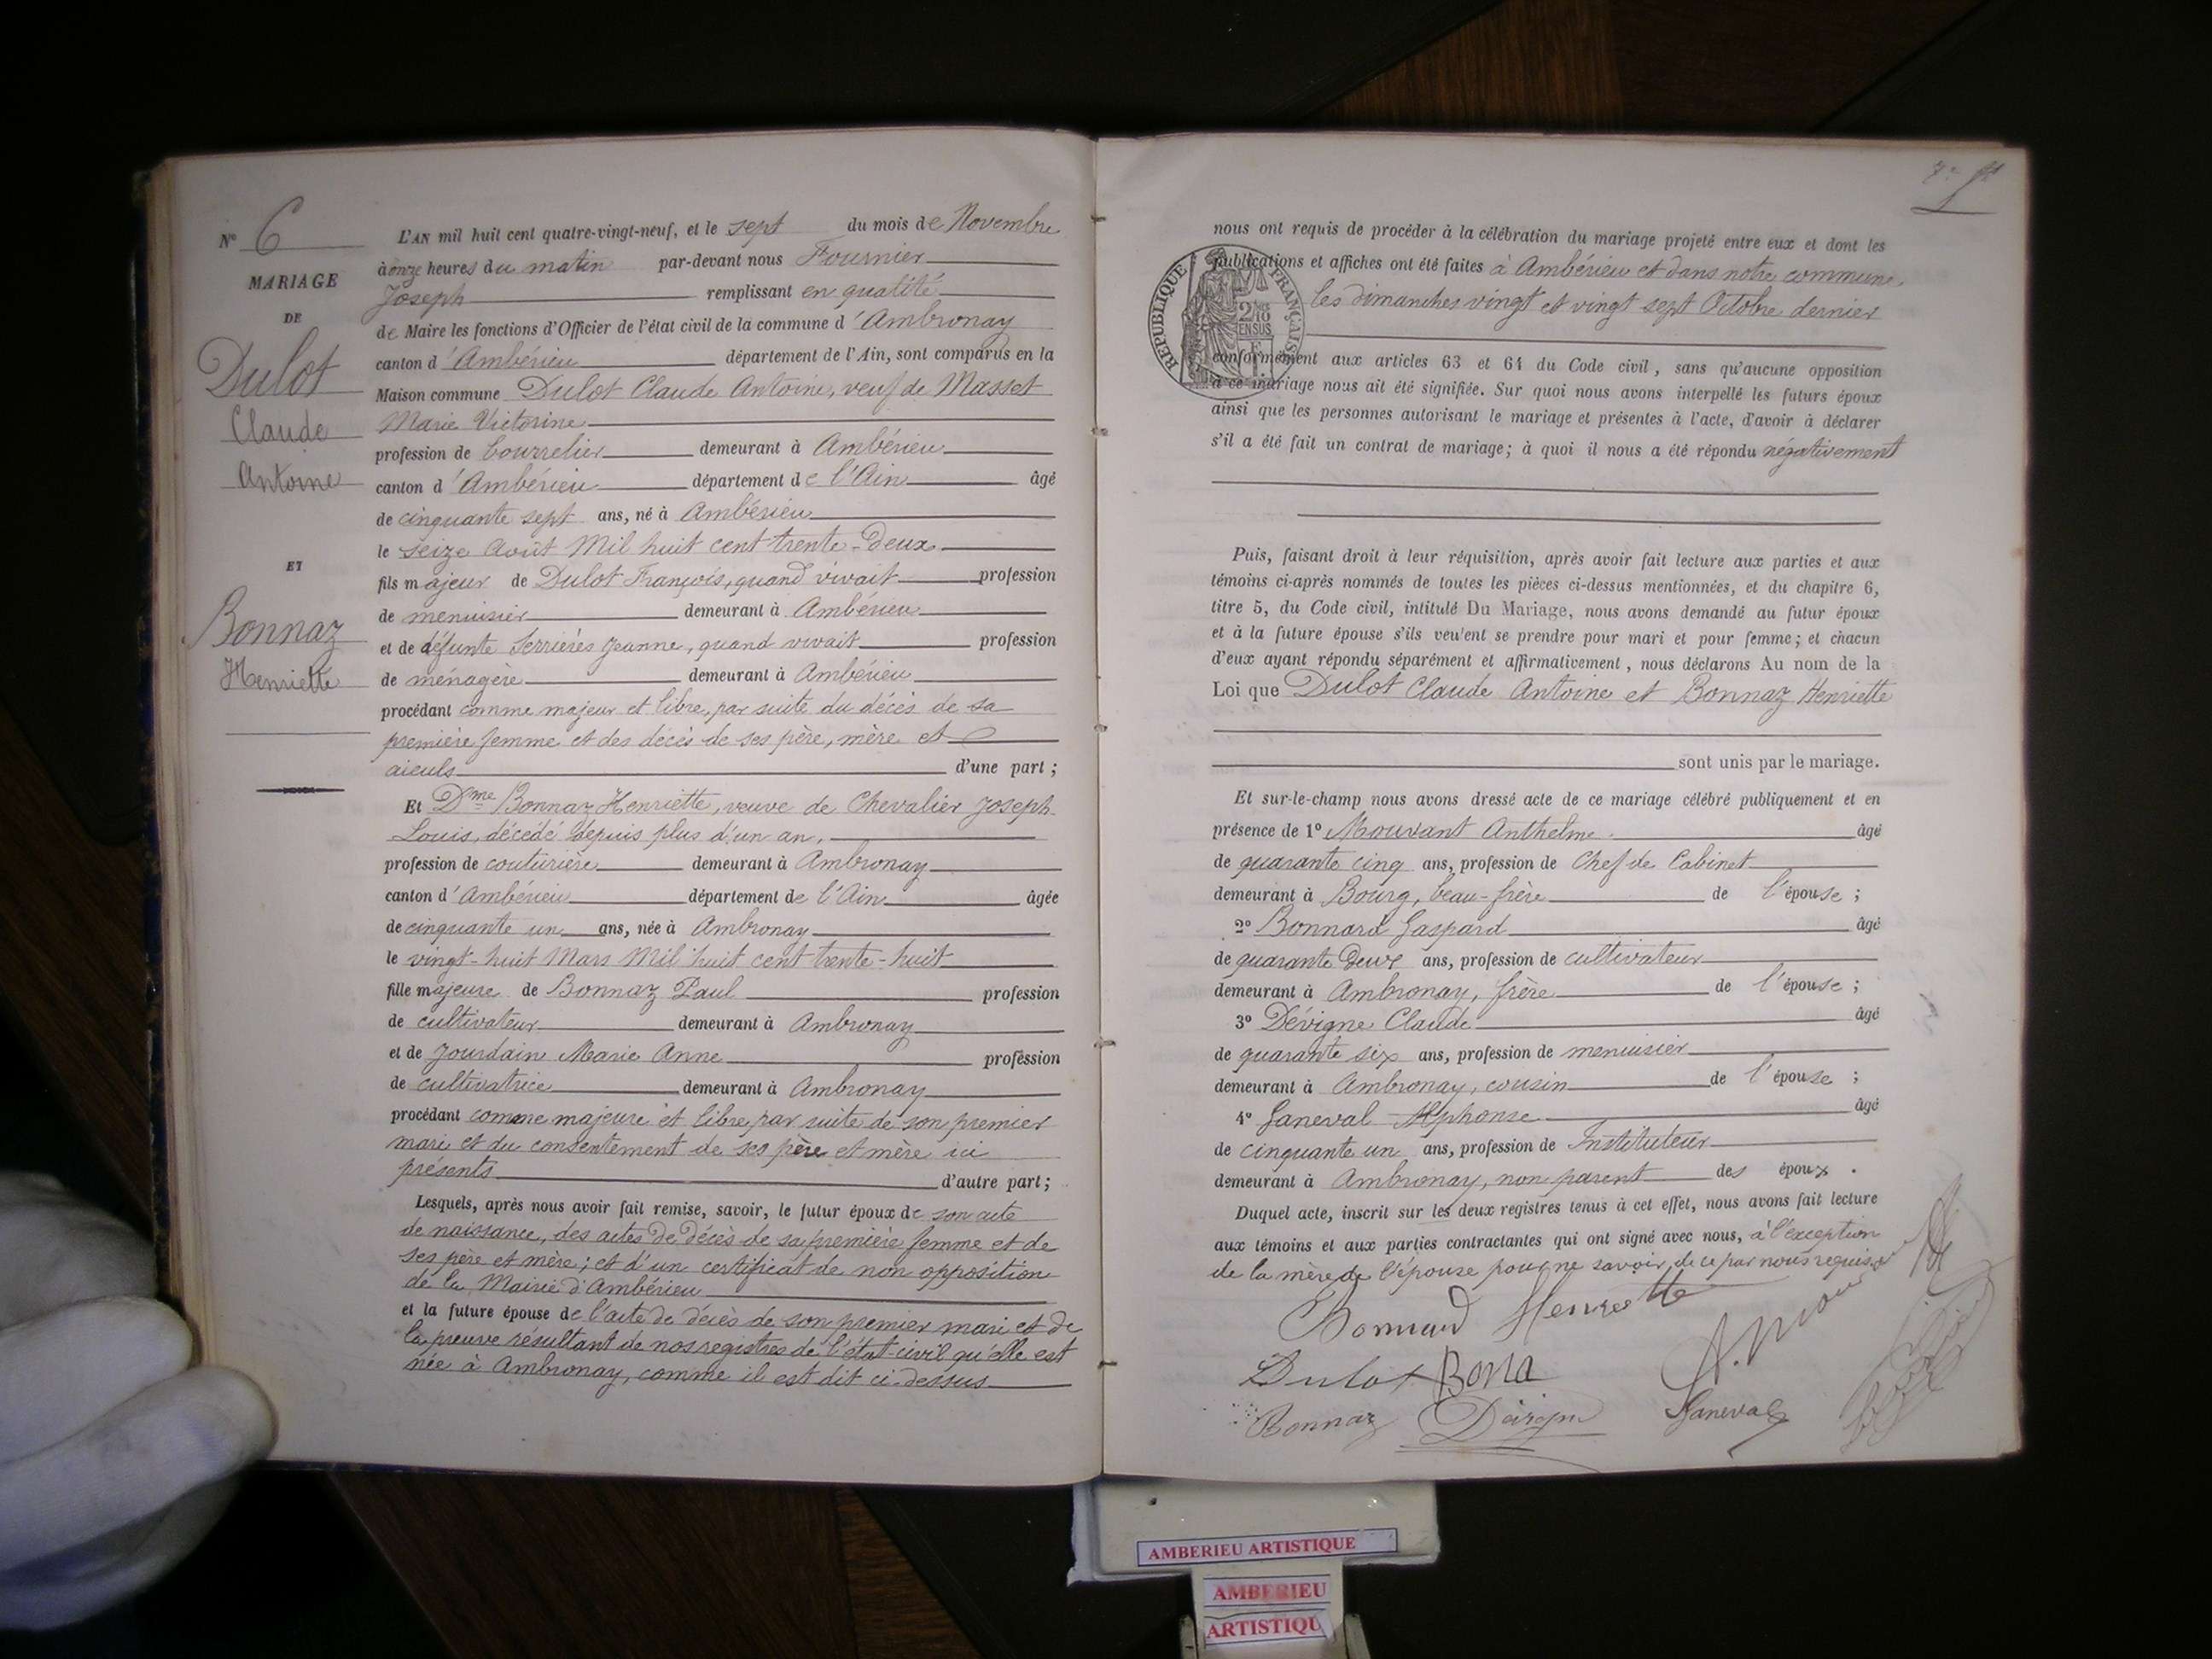 N° 6
MARIAGE
DE
Dulot
Claude
Antoine
ET
Bonnaz
Henriette
L'AN mil huit cent quatre-vingt-neuf, et le sept du mois de Novembre
à onze heures du matin par-devant nous Fournier
Joseph remplissant en qualité
de Maire les fonctions d'Officier de l'état civil de la commune d'Ambronay
canton d'Ambérieu département de l'Ain, sont comparus en la
Maison commune Dulot Claude Antoine, veuf de Masset
Marie Victorine
profession de bourrelier demeurant à Ambérieu
canton d'Ambérieu département de l'Ain âgé
de cinquante sept ans, né à Ambérieu
le seize Août Mil huit cent trente-deux
fils majeur de Dulot François, quand vivait profession
de menuisier demeurant à Ambérieu
et de défunte Serrières Jeanne, quand vivait profession
de ménagère demeurant à Ambérieu
procédant comme majeur et libre, par suite du décès de sa
première femme et des décès de ses père, mère et
aieuls d'une part ;
Et Dme Bonnaz Henriette, veuve de Chevalier Joseph-
Louis, décédé depuis plus d'un an,
profession de couturière demeurant à Ambronay
canton d'Ambérieu département de l'Ain âgée
de cinquante un ans, née à Ambronay
le vingt-huit Mars Mil huit cent trente-huit
fille majeure de Bonnaz Paul profession
de cultivateur demeurant à Ambronay
et de Jourdain Marie Anne profession
de cultivatrice demeurant à Ambronay
procédant comme majeure et libre par suite de son premier
mari et du consentement de ses père et mère ici
présents d'autre part ;
Lesquels, après nous avoir fait remise, savoir, le futur époux de son acte
de naissance, des actes de décès de sa première femme et de
ses père et mère ; et d'un certificat de non opposition
de la Mairie d'Ambérieu
et la future épouse de l'acte de décès de son premier mari et de
la preuve résultant de nos registres de l'état-civil qu'elle est
née à Ambronay, comme il est dit ci-dessus
nous ont requis de procéder à la célébration du mariage projeté entre eux et dont les
publications et affiches ont été faites à Ambérieu et dans notre commune,
les dimanches vingt et vingt sept Octobre dernier
REPUBLIQUE FRANÇAISE
conformément aux articles 63 et 64 du Code civil, sans qu'aucune opposition
à ce mariage nous ait été signifiée. Sur quoi nous avons interpellé les futurs époux
ainsi que les personnes autorisant le mariage et présentes à l'acte, d'avoir à déclarer
s'il a été fait un contrat de mariage ; à quoi il nous a été répondu négativement
Puis, faisant droit à leur réquisition, après avoir fait lecture aux parties et aux
témoins ci-après nommés de toutes les pièces ci-dessus mentionnées, et du chapitre 6,
titre 5, du Code civil, intitulé Du Mariage, nous avons demandé au futur époux
et à la future épouse s'ils veulent se prendre pour mari et pour femme ; et chacun
d'eux ayant répondu séparément et affirmativement, nous déclarons Au nom de la
Loi que Dulot Claude Antoine et Bonnaz Henriette
sont unis par le mariage.
Et sur-le-champ nous avons dressé acte de ce mariage célébré publiquement et en
présence de 1° Mouvant Anthelme âgé
de quarante cinq ans, profession de Chef de Cabinet
demeurant à Bourg, beau-frère de l'épouse ;
2° Bonnard Gaspard âgé
de quarante deux ans, profession de cultivateur
demeurant à Ambronay, frère de l'épouse ;
3° Dévigne Claude âgé
de quarante six ans, profession de menuisier
demeurant à Ambronay, cousin de l'épouse ;
4° Ganeval Alphonse âgé
de cinquante un ans, profession de Instituteur
demeurant à Ambronay, non parent des époux.
Duquel acte, inscrit sur les deux registres tenus à cet effet, nous avons fait lecture
aux témoins et aux parties contractantes qui ont signé avec nous, à l'exception
de la mère de l'épouse pour ne savoir, de ce par nous requise
Bonnard Henriette
Dulot Bona
Bonnaz Ganeval
AMBERIEU ARTISTIQUE
AMBERIEU
ARTISTIQU